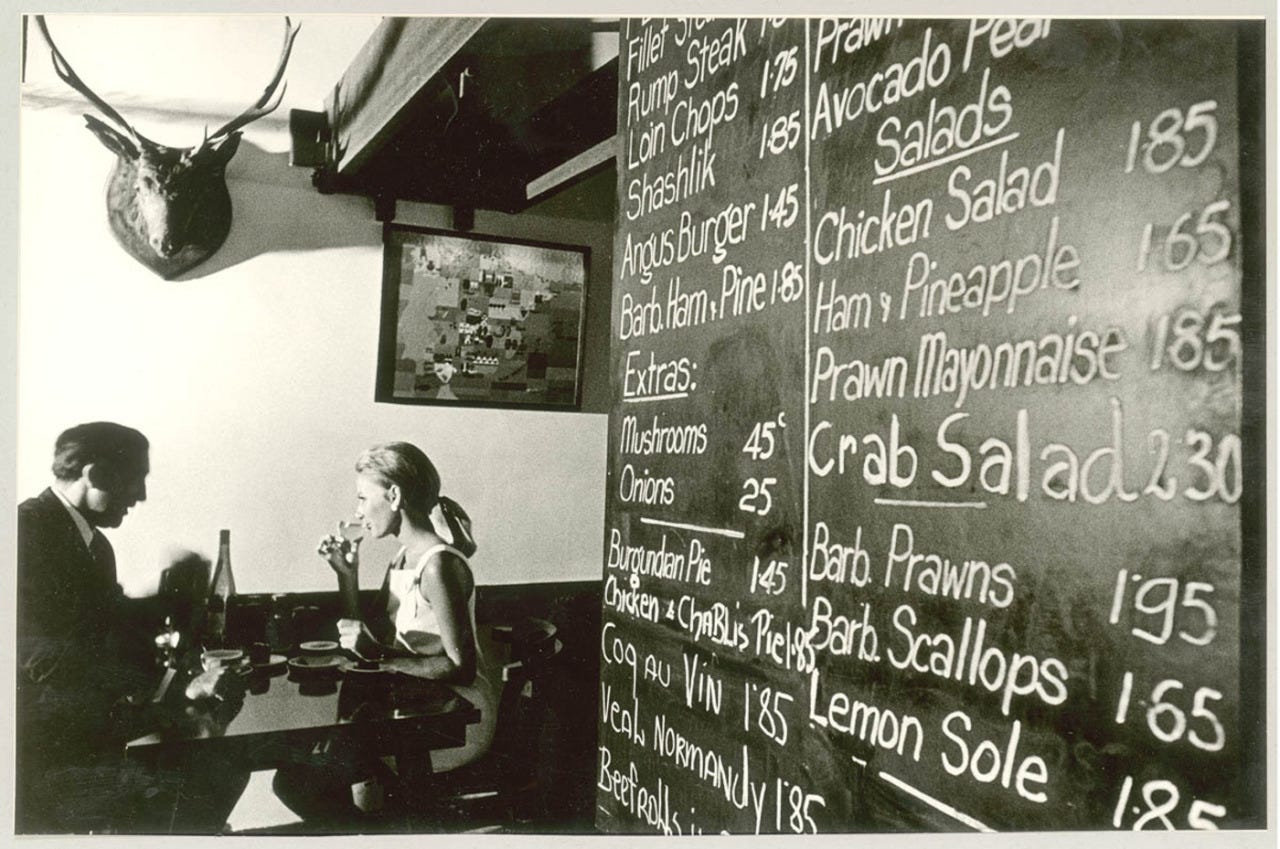 Fillet
Rump Steak
Loin Chops 1·75
Shashlik 1·85
Angus Burger 1·45
Barb. Ham & Pine 1·85
Extras:
Mushrooms 45c
Onions 25
Burgundan Pie 1·45
Chicken & CHABLis Pie 1·85
Coq AU VIN 1·85
VEAL NORMANDy 1·85
Beefrolls
Prawn
Avocado Pear
Salads
Chicken Salad 1·85
Ham & Pineapple 1·65
Prawn Mayonnaise 1·85
Crab Salad 2·30
Barb. Prawns 1·95
Barb. Scallops 1·65
Lemon Sole 1·85